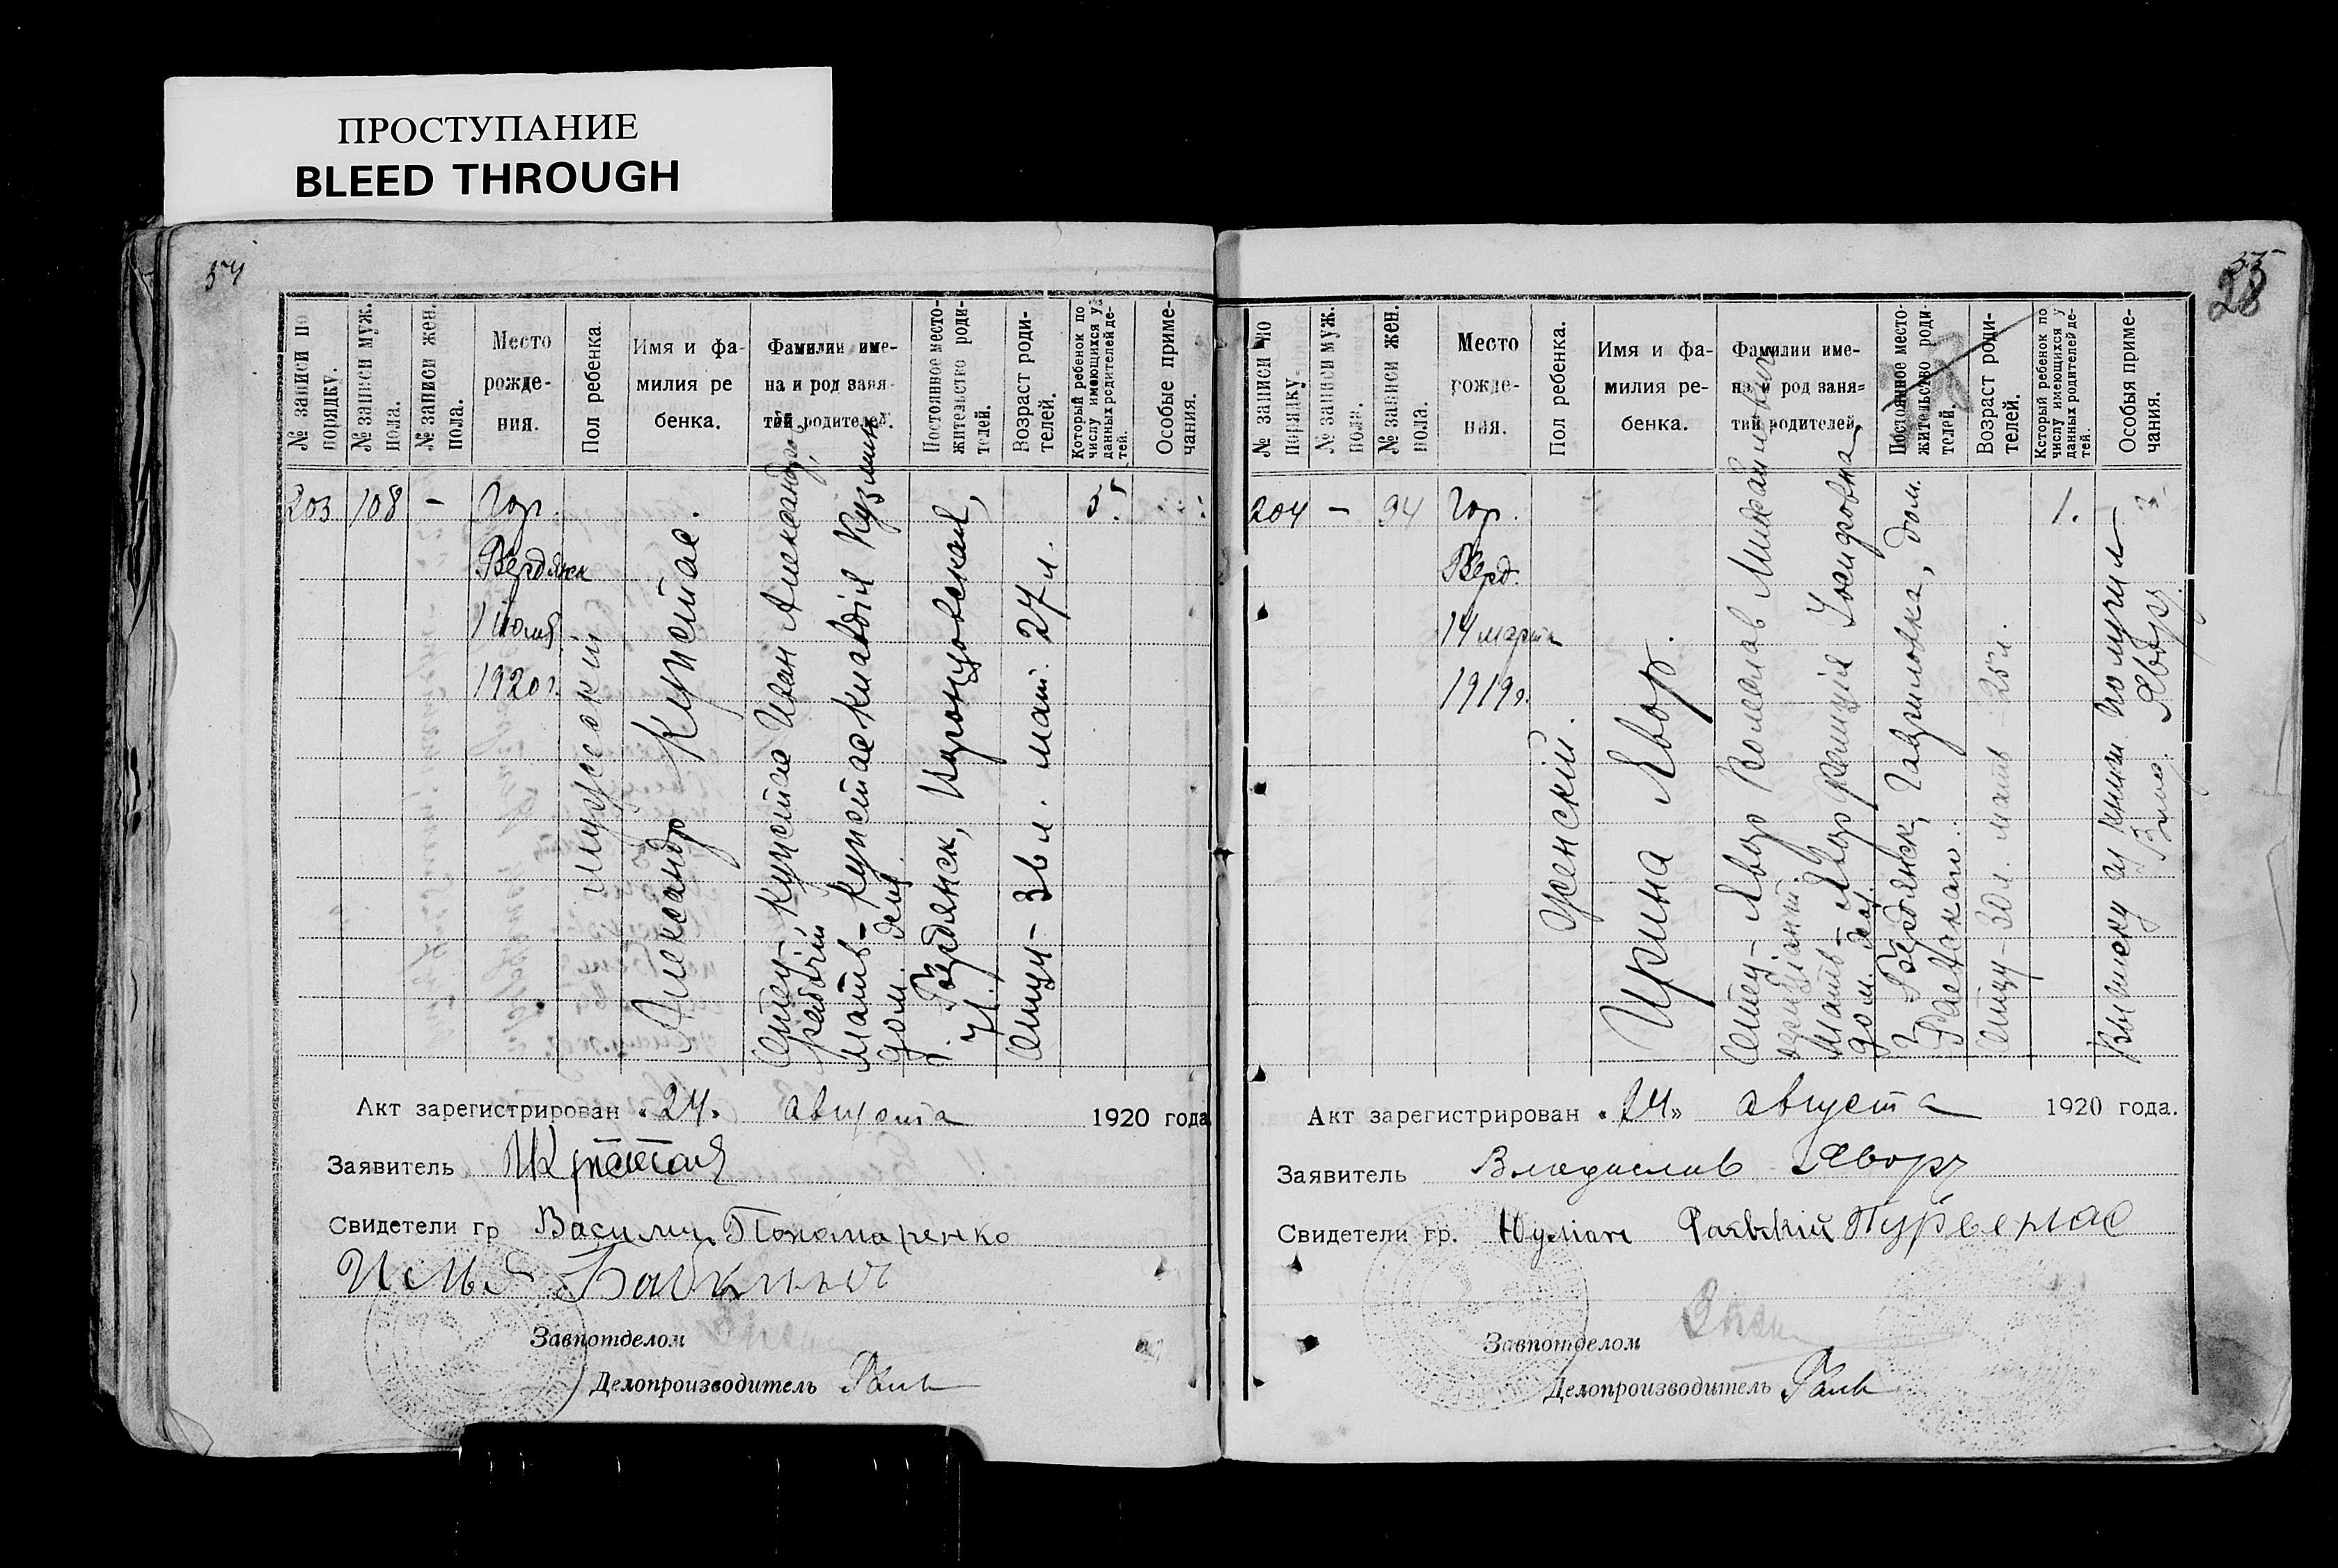 ПРОСТУПАНИЕ
BLEED THROUGH
54
№ записи по порядку.
№ записи муж. пола.
№ записи жен. пола.
Место рожде-
ния.
Пол ребенка.
Имя и фа-
милия ре
бенка.
Фамилии име-
на и род заня-
тий родителей.
Постоянное место-
жительство роди-
телей.
Возраст роди-
телей.
Который ребенок по
числу имеющихся у
данных родителей де-
тей.
Особые приме-
чания.
203
108
–
Гор.
Бердянск
1 июля
1920 г.
мужеский
Александр Кутстае.
Отец – Кутстае Иван Александр.,
рабочий
Мать – Кутстае Клавдія Кузьмин.
дом. дел.
г. Бердянск, Воронцовская,
71.
Отцу – 36 л. мат. 27 л.
5.
Акт зарегистрирован „24" августа 1920 года
Заявитель
Свидетели гр Василич Пономаренко
Илья
Завпотделом
Делопроизводитель
55
28
№ записи по
порядку.
№ записи муж.
пола.
№ записи жен.
пола.
Место
рожде-
ния.
Пол ребенка.
Имя и фа-
милия ре-
бенка.
Фамилии име-
на и род заня-
тий родителей.
Постоянное место-
жительство роди-
телей.
Возраст роди-
телей.
Который ребенок по
числу имеющихся у
данных родителей де-
тей.
Особыя приме-
чания.
204
–
94
Гор.
Берд.
14 марта
1919 г.
Женский.
Ирина Явор.
Отец – Явор
Мать – Явор Франция Іосифовна,
дом. дел.
г. Бердянск, Гавриловка, дом.
Отцу – 30 л. мать – 25 л.
1.
Выписку из книги получил
Влад. Яворъ.
Акт зарегистрирован „24" августа 1920 года.
Заявитель Владислав Яворъ
Свидетели гр. Юлiан
Завпотделом
Делопроизводитель